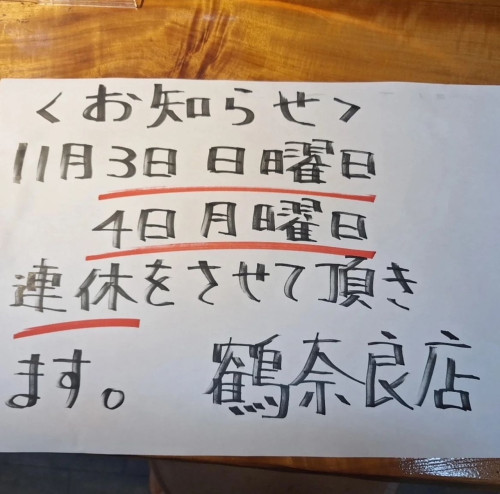 <お知らせ>
11月3日 日曜日
4日 月曜日
連休をさせて頂き
ます。 鶴奈良店